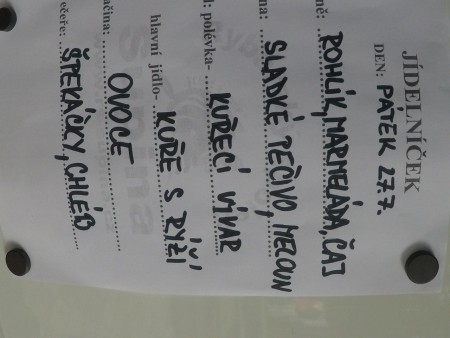 JÍDELNÍČEK
DEN: PÁTEK 27.7.
ně: ROHLÍK, MARMELÁDA, ČAJ
na: SLADKÉ PEČIVO, MELOUN
d: polévka- KUŘECÍ VÝVAR
hlavní jídlo- KUŘE S RÝŽÍ
čina: OVOCE
ečeře: ŠPEKÁČKY, CHLÉB